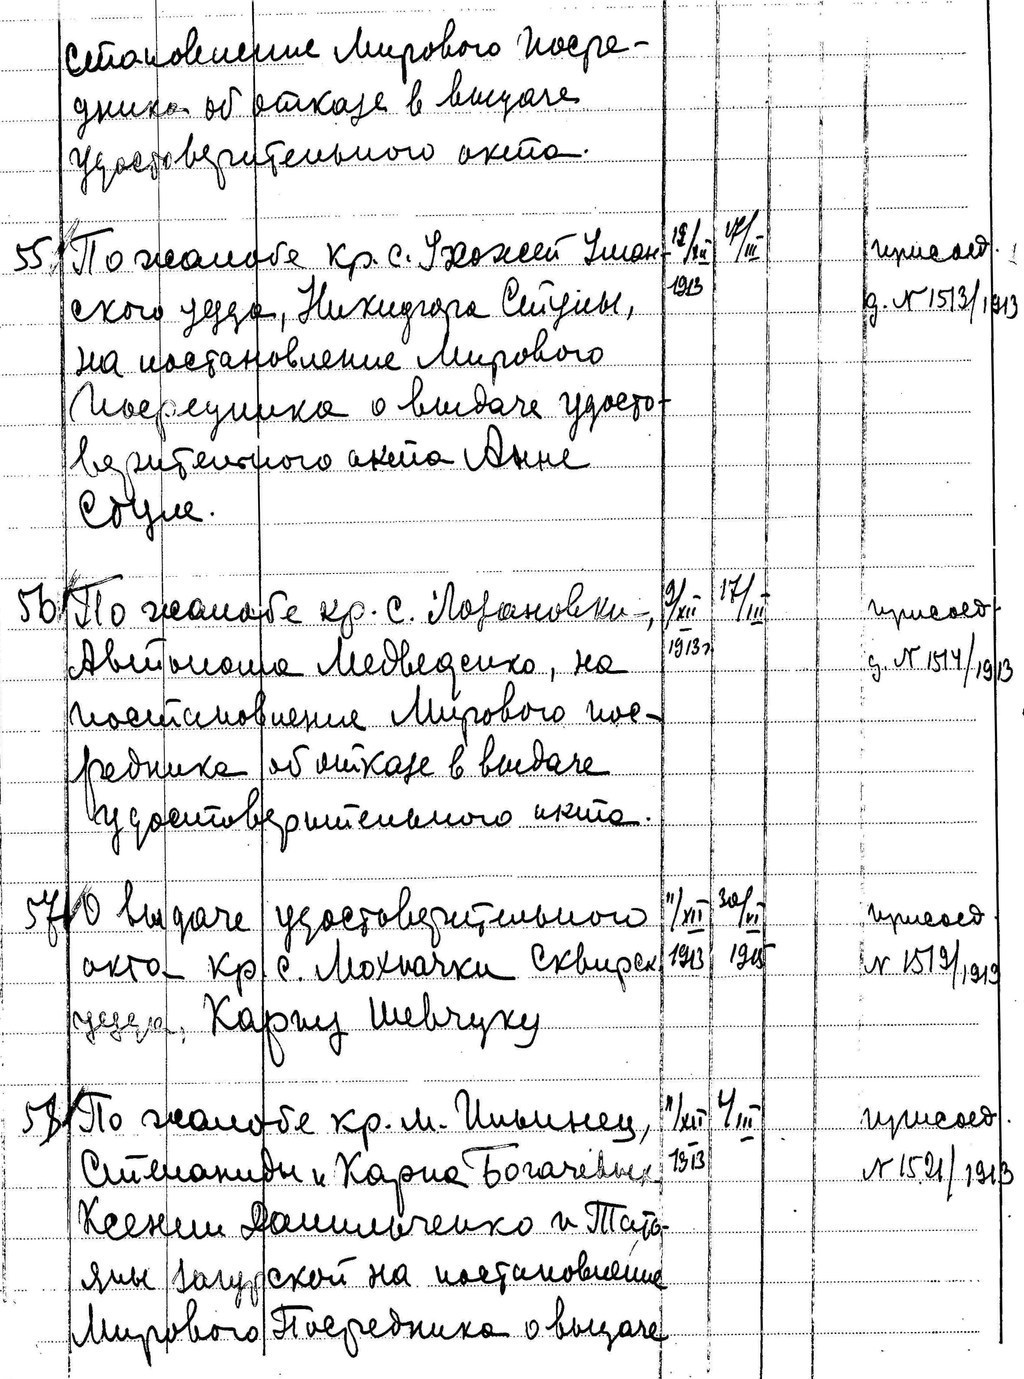 становление Мирового посре-
дника об отказе в выдаче
удостоверительного акта.
55. По жалобе кр. с. Ухожей Уман- 12/XII 17/III присоед.
ского уезда, Никифора Ступы, 1913 д. N 1513/1913
на постановление Мирового
Посредника о выдаче удосто-
верительного акта Анне
Ступе.
56 По жалобе кр. с. Лозановки, 9/XII 17/III присоед
Автонома Медведенко, на 1913г д. N 1514/1913
постановление Мирового пос-
редника об отказе в выдаче
удостоверительного акта.
57 О выдаче удостоверительного 11/XII 30/VI присоед
акта кр. с. Мохначки Сквирск 1913 1915 N 1519/1913
уезда, Карпу Шевчуку
58 По жалобе кр. м. Ильинец, 11/XII 4/III присоед.
Степаниды и Карпа Богачевых 1913 N 1521/1913
Ксении Данильченко и Тать-
яны Загурской на постановление
Мирового Посредника о выдаче